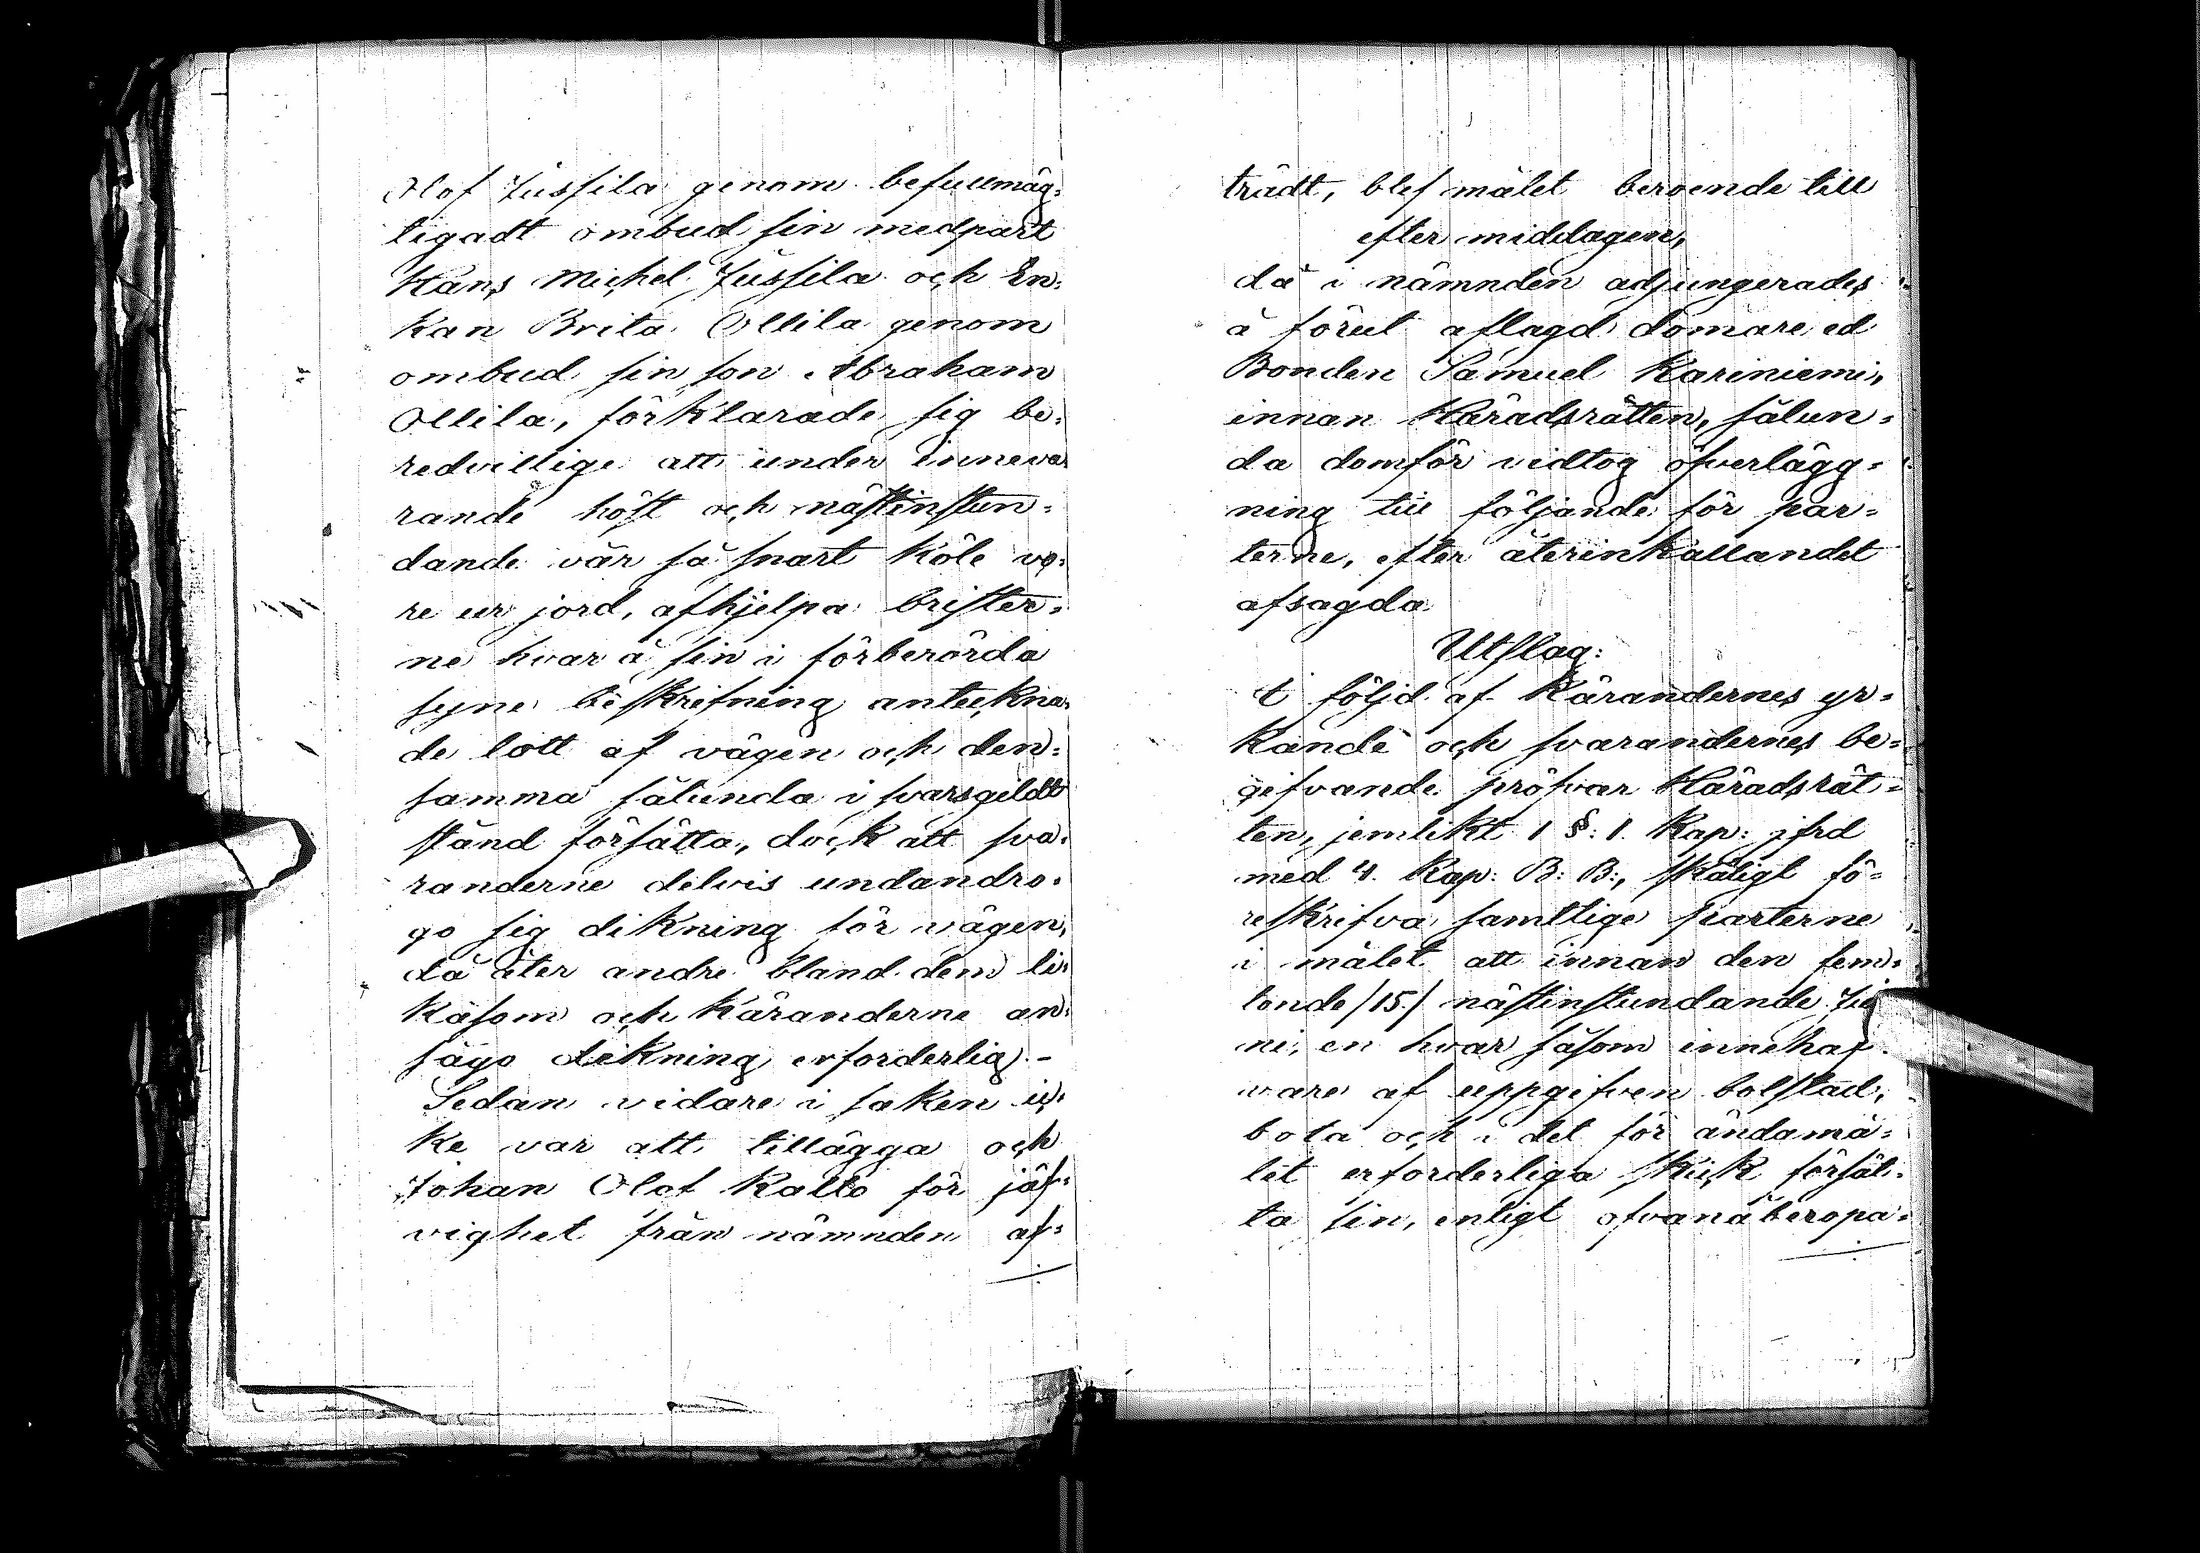 Olof Jussila genom befullmäg-
tigadt ombud sin medpart
Hans Michel Jussila och En-
kan Brita Ollila genom
ombud sin son Abraham
Ollila, förklarade sig be-
redvillige att under inneva
rande höst och nästinstun-
dande vår så snart kåle vo-
re ur jord, afhjelpa brister-
ne hvar å sin i förberörda
syne beskrifning anteckna-
de lott af vägen och den-
samma sålunda i svarsgildt
stånd försätta, dock att sva-
randerne delvis undandro-
go sig dikning för vägen,
då åter andre bland dem li-
kasom och Käranderne an-
sågo dikning erforderlig.-
Sedan vidare i saken ic-
ke var att tillägga och
Johan Olof Kallo för jäf-
vighet från nämnden af-
trädt, blef målet beroende till
efter middagen,
då i nämnden adjungerades
å förut aflagd domare ed
Bonden Samuel Kariniemi,
innan Häradsrätten, sålun-
da domför vidtog öfverlägg-
ning till följande för par-
terne, efter återinkallandet
afsagda
Utslag:
I följd af Kärandernes yr-
kande och svarandernes be-
gifvande pröfvar Häradsrät-
ten, jemlikt 1 §: 1. Kap: jfrd
med 4. Kap: B: B:, skäligt fö-
reskrifva samtlige parterne
i målet att innan den fem-
tonde /15./ nästinstundande Ju
ni, en hvar såsom innehaf-
vare af uppgifven bolstad,
bota och i det för ändamå-
let erforderliga skick försät-
ta sin, enligt ofvanåberopa-